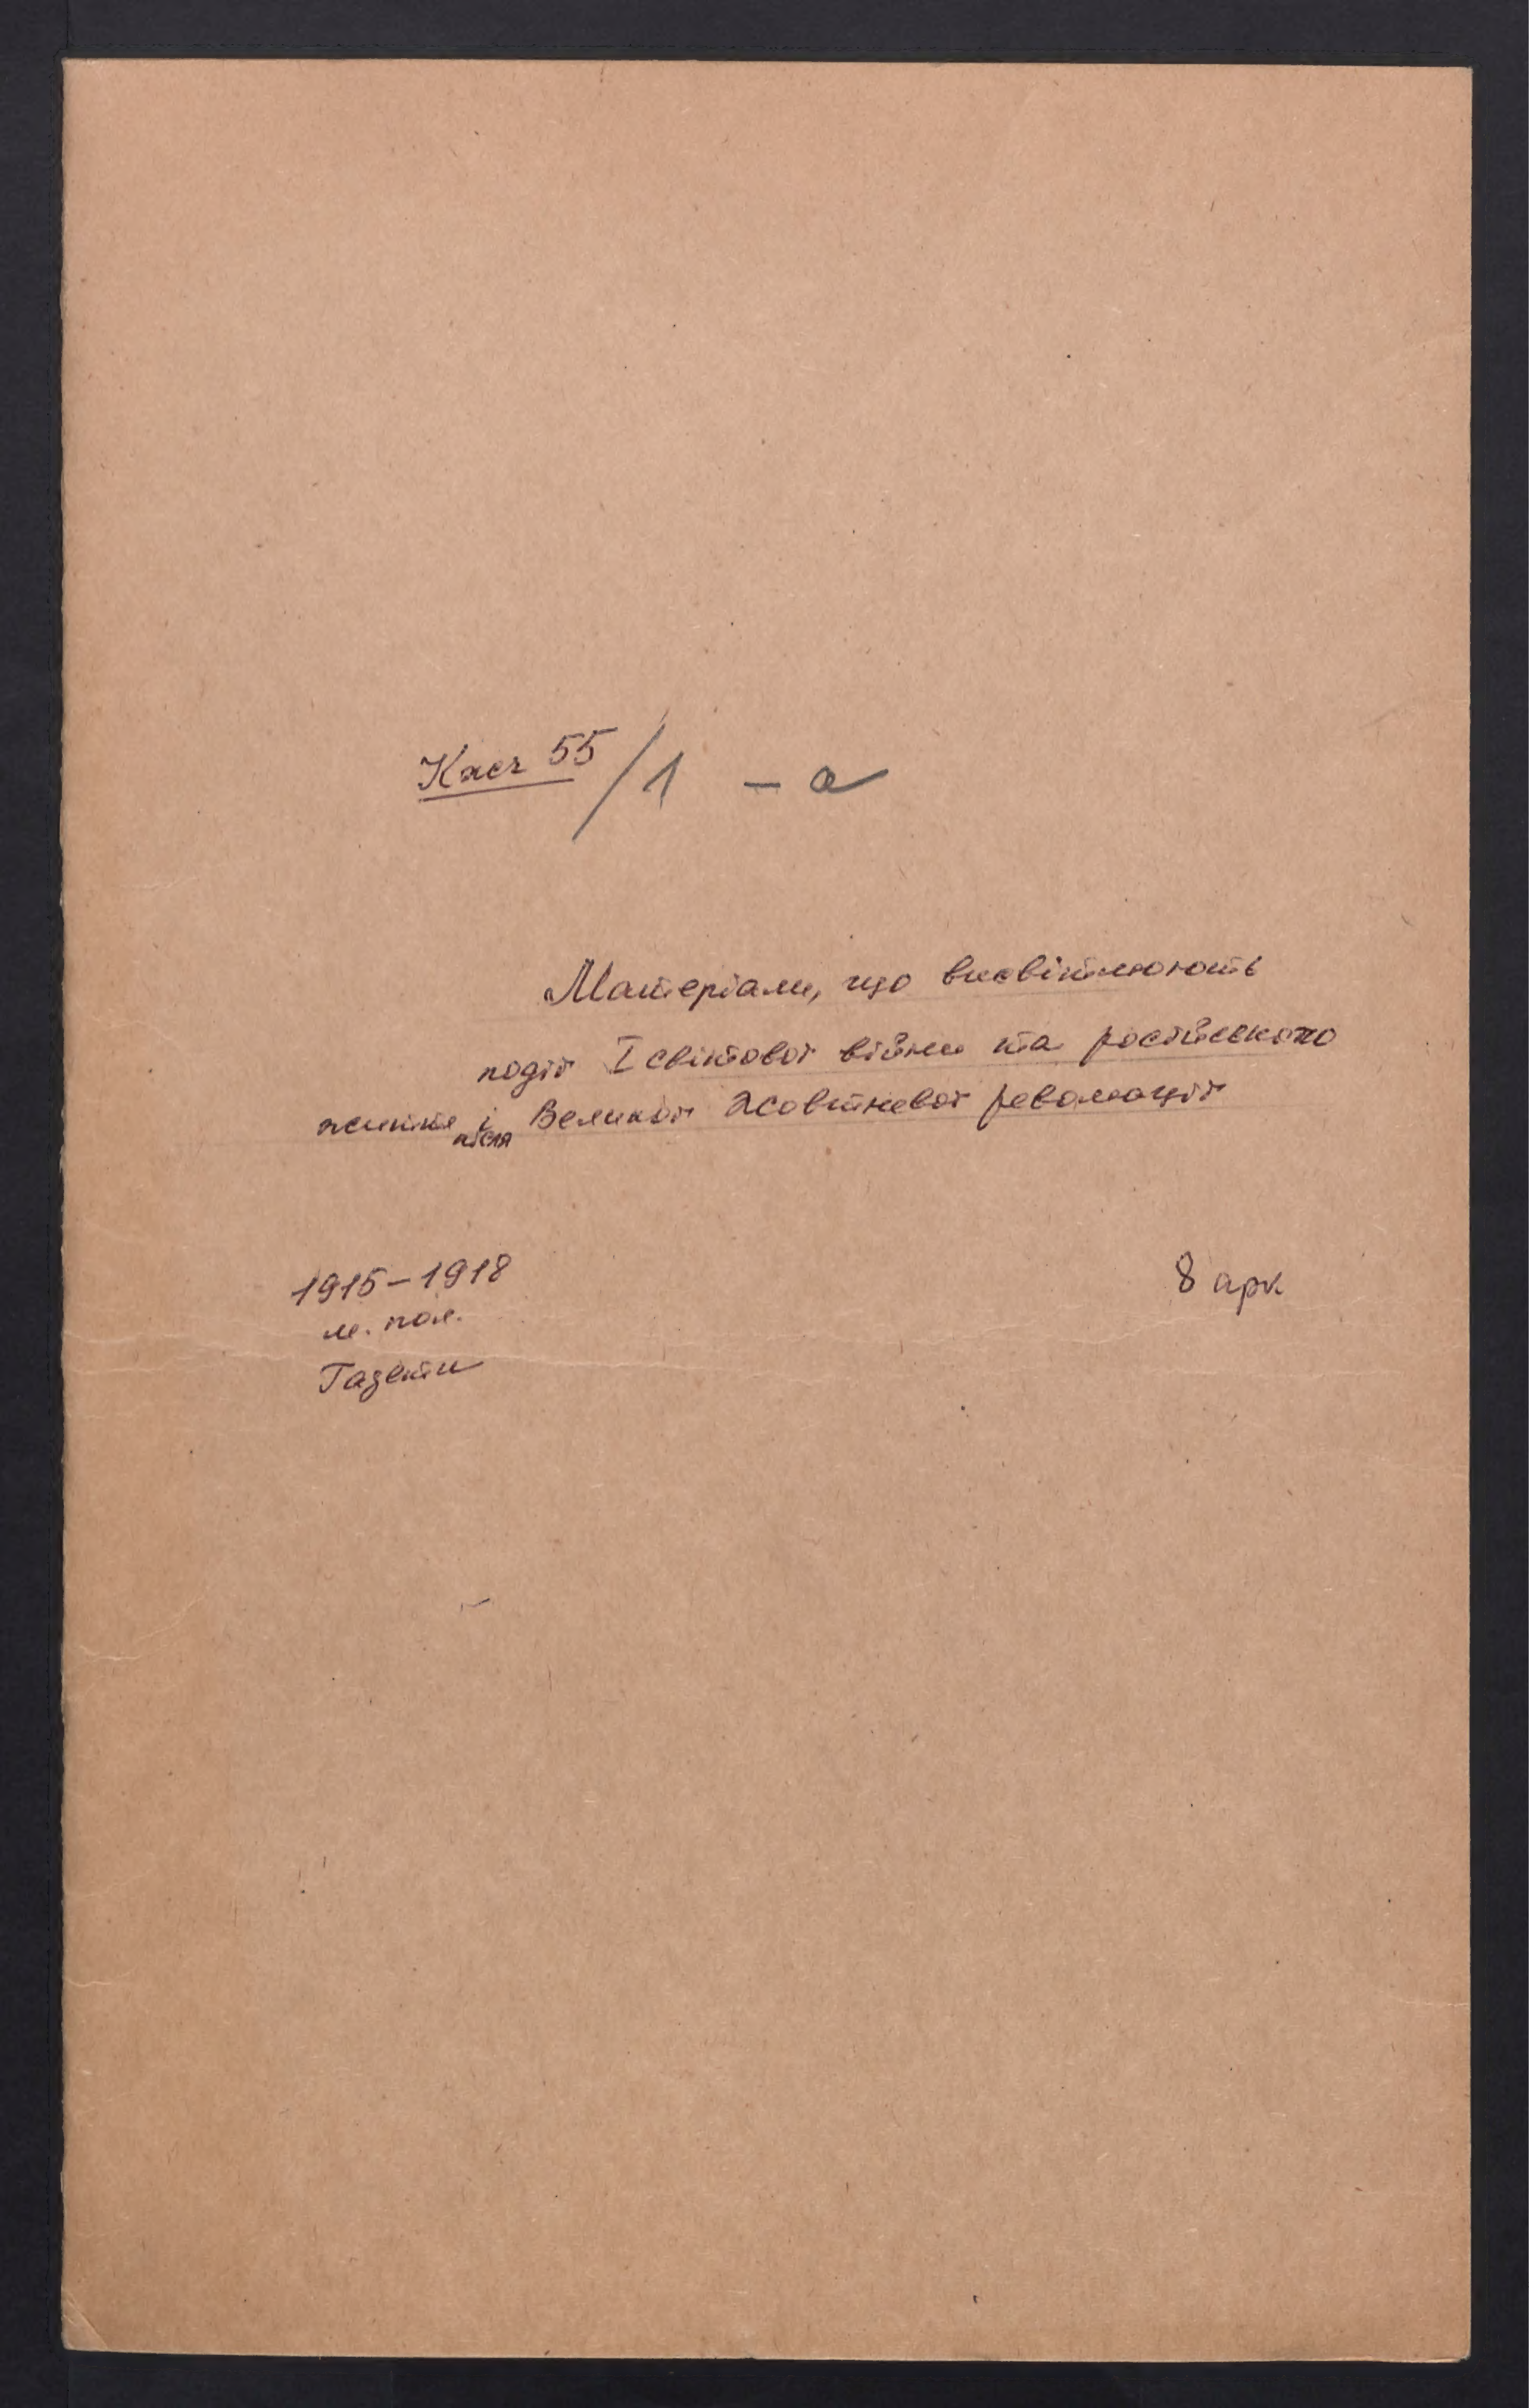 Касг 55/1 – а
Матеріали, що висвітлюють
події І світової війни та російського
життя і після Великої Жовтневої революції
1915–1918
м. пол.
Газети
8 арк